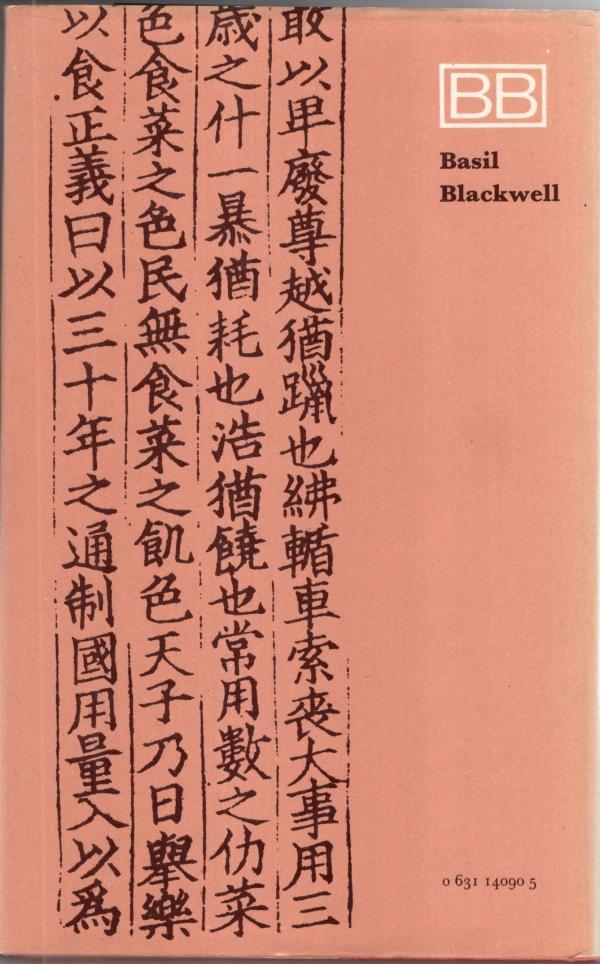 敢以卑廢尊越猶躐也紼輴車索喪大事用三
歲之什一暴猶耗也浩猶饒也常用數之仂菜
色食菜之色民無食菜之飢色天子乃日舉樂
以食正義曰以三十年之通制國用量入以爲
BB
Basil
Blackwell
0 631 14090 5